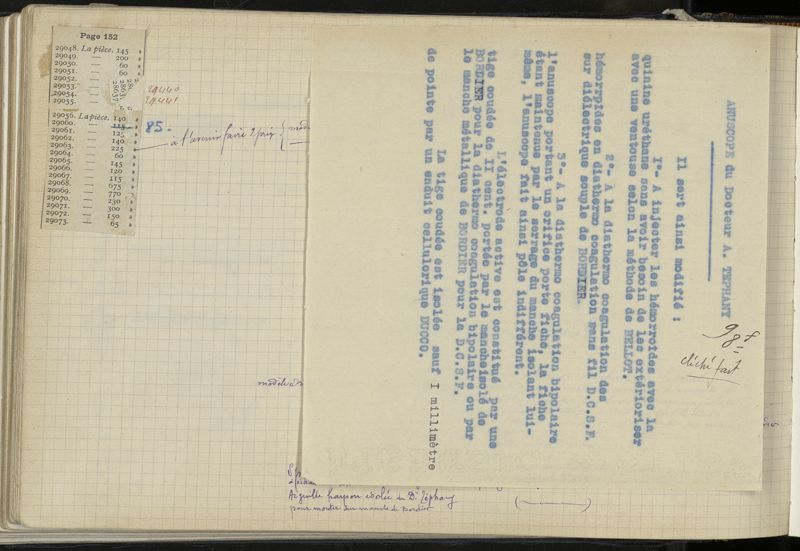 Page 152
29048. La pièce. 145 »
29049. — 200 »
29050. — 60 »
29051. — 60 »
29052. —
29053. —
29054. —
29055. —
29056. La pièce. 140 »
29060. — 115 »
29061. — 125 »
29062. — 140 »
29063. — 225 »
29064. — 60 »
29065. — 145 »
29066. — 120 »
29067. — 115 »
29068. — 675 »
29069. — 770 »
29070. — 230 »
29071. — 300 »
29072. — 150 »
29073. — 65 »
29440
29441
85=
à l'avenir faire 2 prix {
ANUSCOPE du Docteur A. TEPHANY
98f
cliché fait
Il sert ainsi modifié :
1°- A injecter les hémorroïdes avec la
quinine uréthane sans avoir besoin de les extérioriser
avec une ventouse selon la méthode de BELLOT.
2°- A la diathermo coagulation des
hémorrpïdes en diathermo coagulation sans fil D.C.S.F.
sur diélectrique souple de BORDIER.
3°- A la diathermo coagulation bipolaire
l'anuscope portant un orifice porte fiche, la fiche
étant maintenue par le serrage du manche isolant lui-
même, l'anuscope fait ainsi pôle indifférent.
L'électrode active est constitué par une
tige coudée de II cent. portée par le mancheisolé de
BORDIER pour la diathermo coagulation bipolaire ou par
le manche métallique de BORDIER pour la D.C.S.F.
La tige coudée est isolée sauf I millimètre
de pointe par un enduit cellulorique DUCCO.
Aiguille harpon isolée du Dr Téphany
pour monter sur manche de Bordier